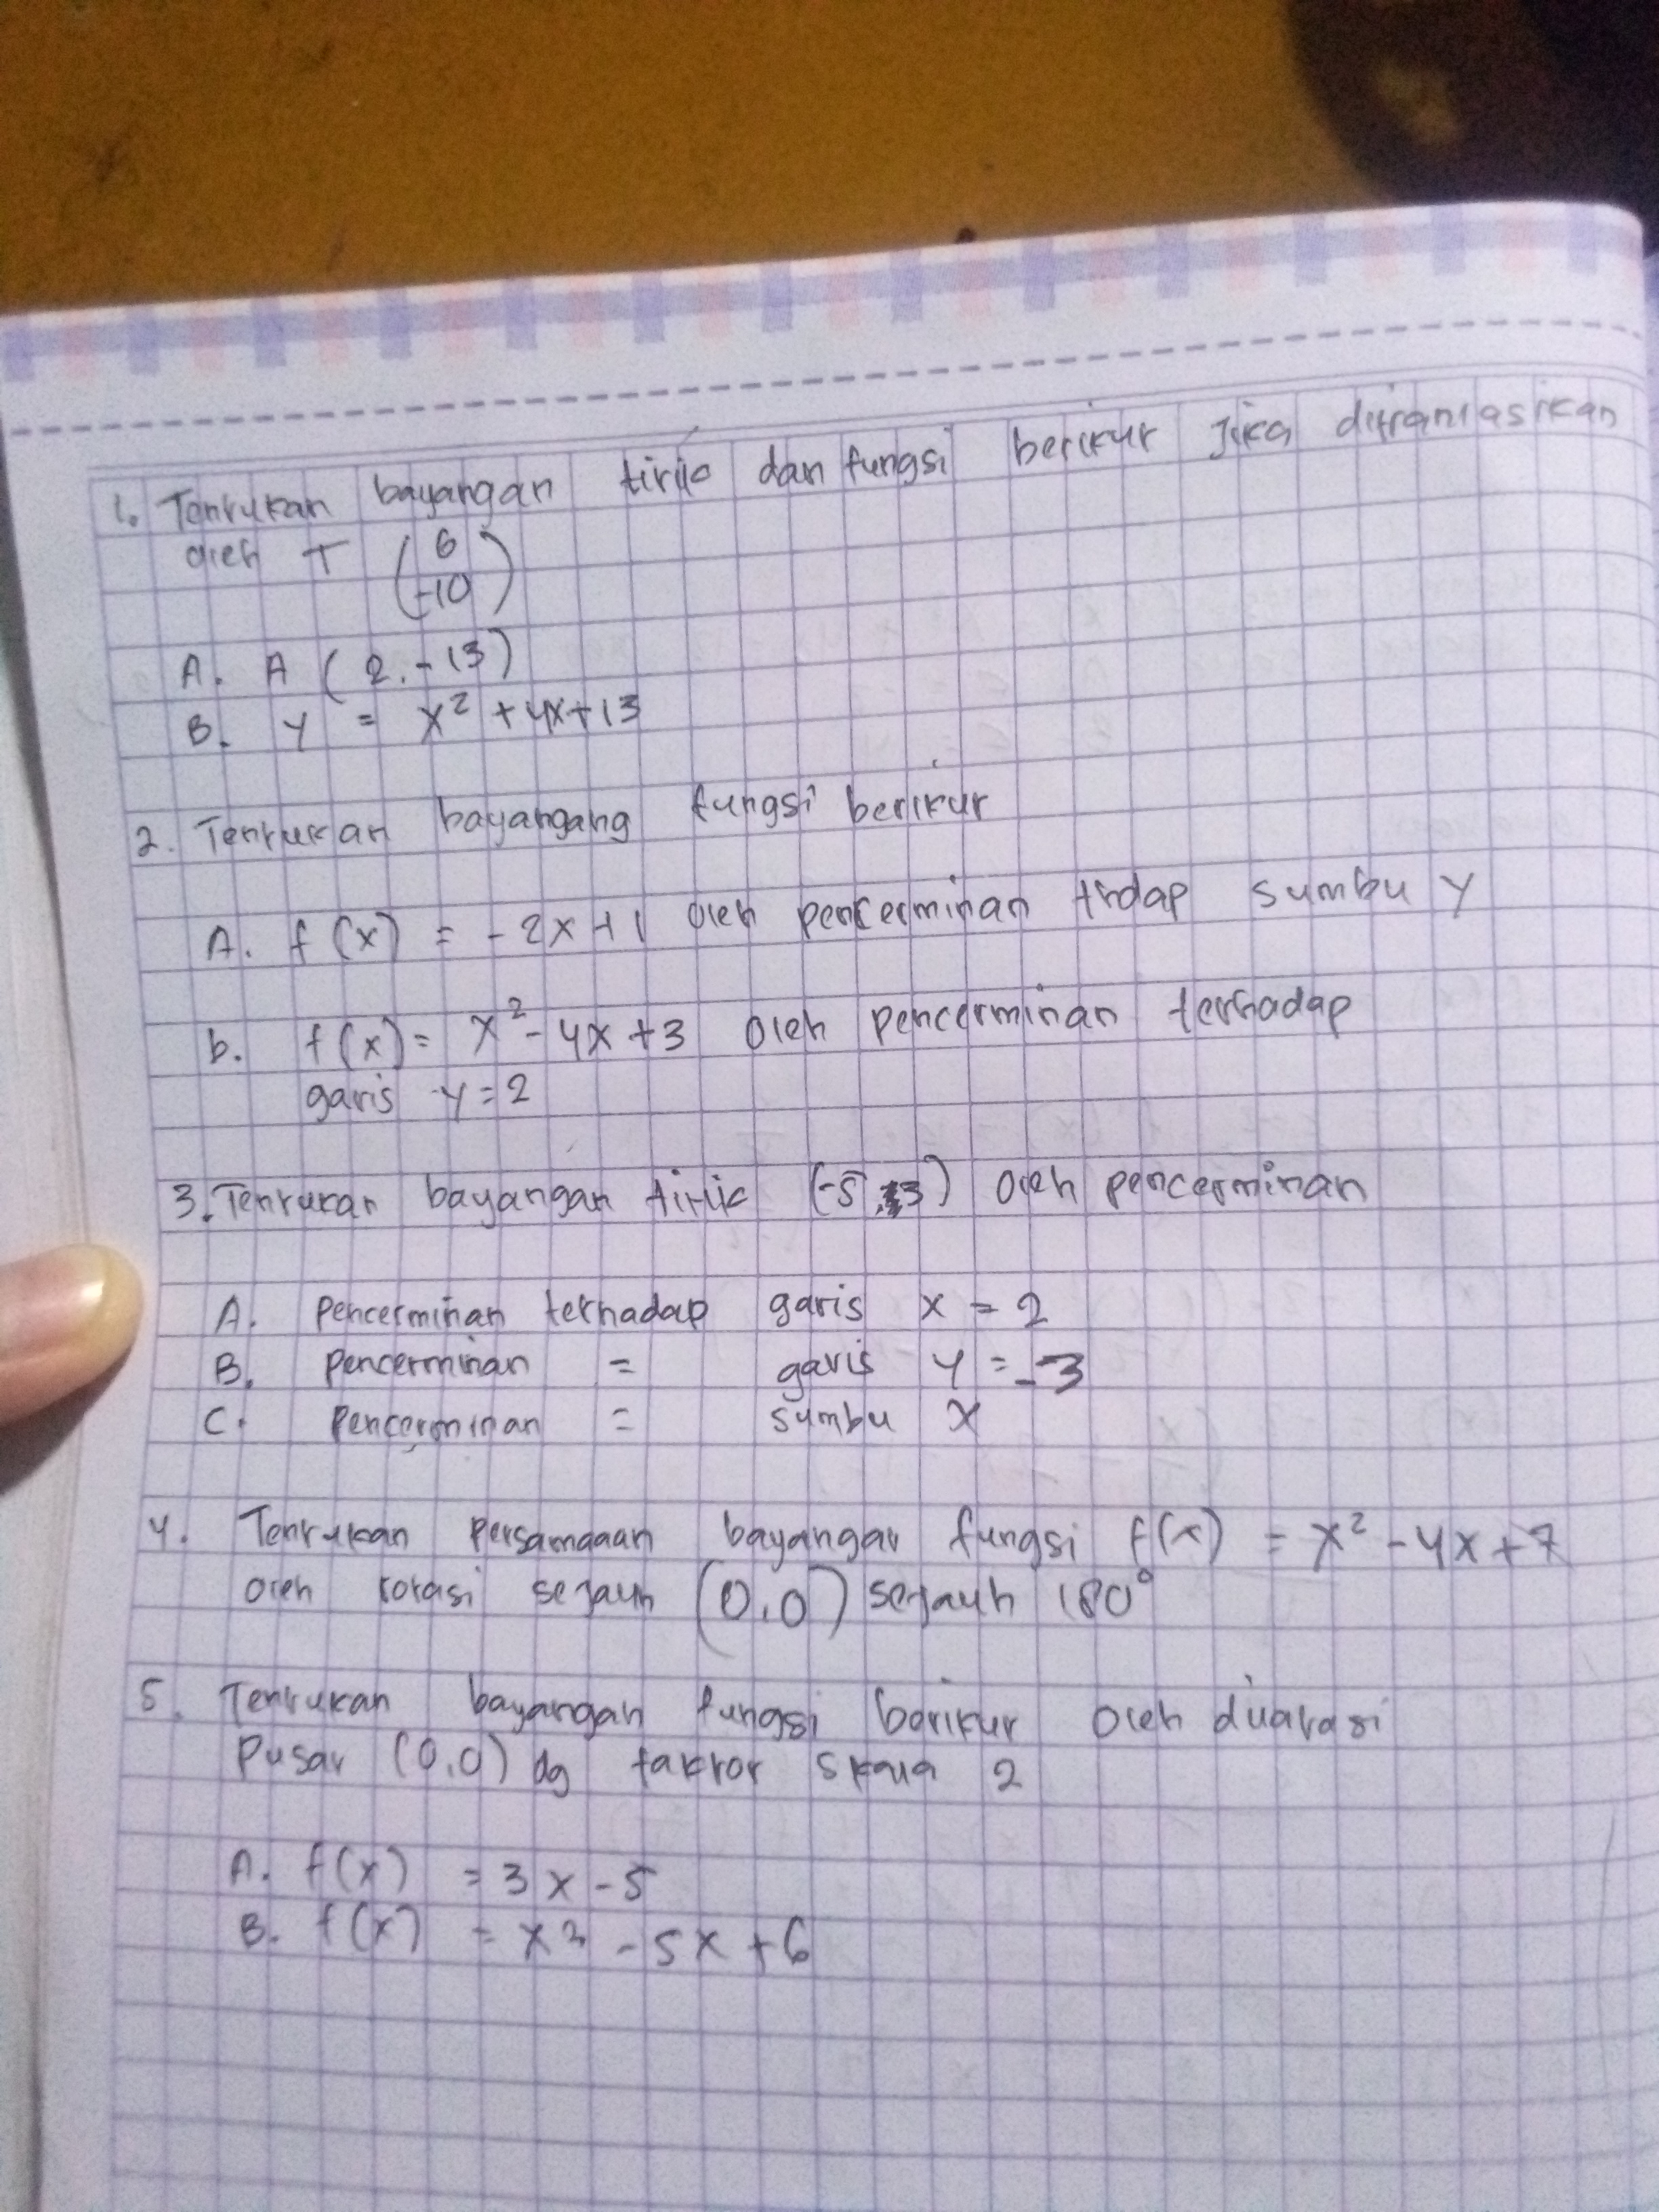 1. Tentukan bayangan titik dan fungsi berikut jika ditranslasikan
oleh T (6 -10)
A. A (2, -13)
B. y = x² + 4x + 13
2. Tentukan bayangang fungsi berikut
A. f(x) = -2x + 1 oleh pencerminan thdap sumbu y
b. f(x) = x² - 4x + 3 oleh pencerminan terhadap
garis y = 2
3. Tentukan bayangan titik (-5, 3) oleh pencerminan
A. pencerminan terhadap garis x = 2
B. pencerminan = garis y = -3
C. pencerminan = sumbu x
4. Tentukan persamaaan bayangan fungsi f(x) = x² - 4x + 7
oleh rotasi sejauh (0,0) sejauh 180°
5. Tentukan bayangan fungsi berikut oleh dilatasi
Pusat (0,0) dg faktor skala 2
A. f(x) = 3x - 5
B. f(x) = x² - 5x + 6